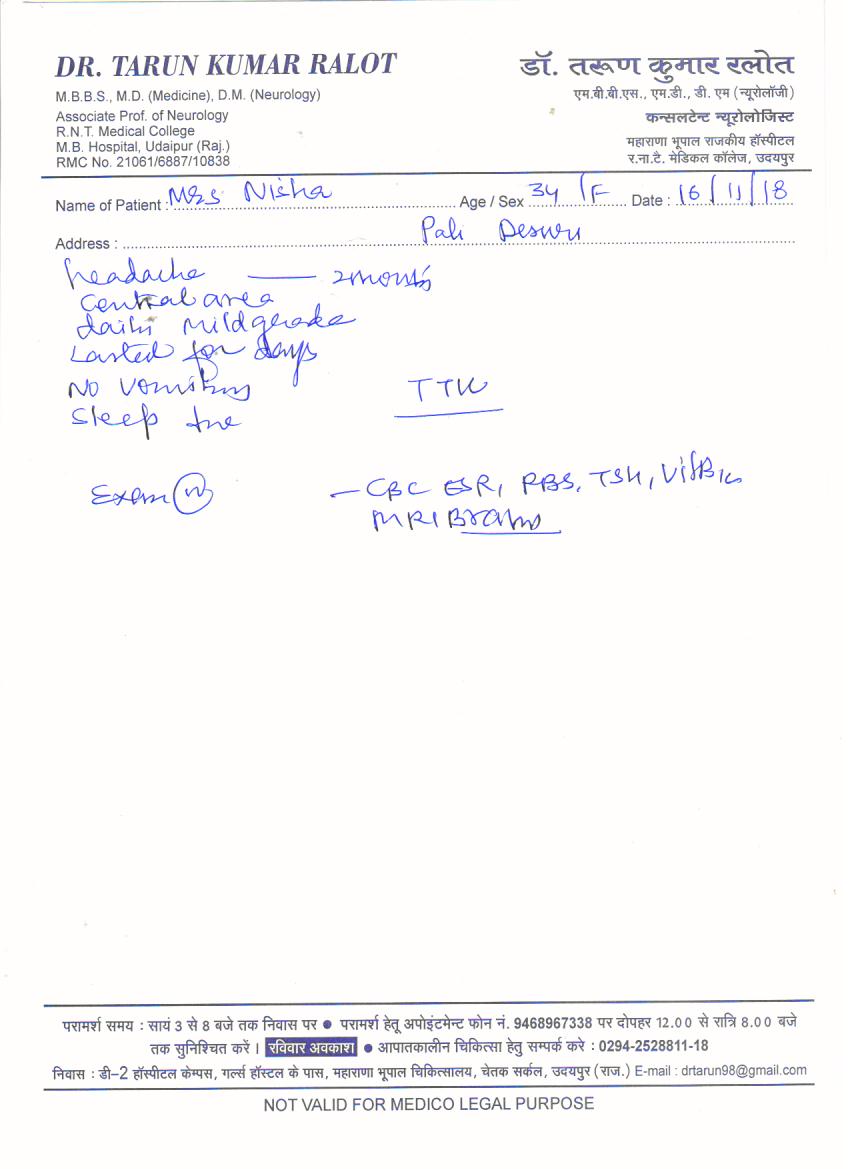 DR. TARUN KUMAR RALOT
M.B.B.S., M.D. (Medicine), D.M. (Neurology)
Associate Prof. of Neurology
R.N.T. Medical College
M.B. Hospital, Udaipur (Raj.)
RMC No. 21061/6887/10838
डॉ. तरूण कुमार रलोत
एम.बी.बी.एस., एम.डी., डी. एम (न्यूरोलॉजी)
कन्सलटेन्ट न्यूरोलोजिस्ट
महाराणा भूपाल राजकीय हॉस्पीटल
र.ना.टै. मेडिकल कॉलेज, उदयपुर
Name of Patient : Mrs Nisha Age / Sex 34 / F Date : 16/11/18
Address : Pali
headache — 2 months
Central area
daily mild grade
Lasted for days
No vomiting
Sleep
Exam (N)
— CBC ESR, RBS, TSH, Vit B12
MRI Brain
परामर्श समय : सायं 3 से 8 बजे तक निवास पर ● परामर्श हेतू अपोइंटमेन्ट फोन नं. 9468967338 पर दोपहर 12.00 से रात्रि 8.00 बजे
तक सुनिश्चित करें । रविवार अवकाश ● आपातकालीन चिकित्सा हेतु सम्पर्क करे : 0294-2528811-18
निवास : डी-2 हॉस्पीटल केम्पस, गर्ल्स हॉस्टल के पास, महाराणा भूपाल चिकित्सालय, चेतक सर्कल, उदयपुर (राज.) E-mail : drtarun98@gmail.com
NOT VALID FOR MEDICO LEGAL PURPOSE